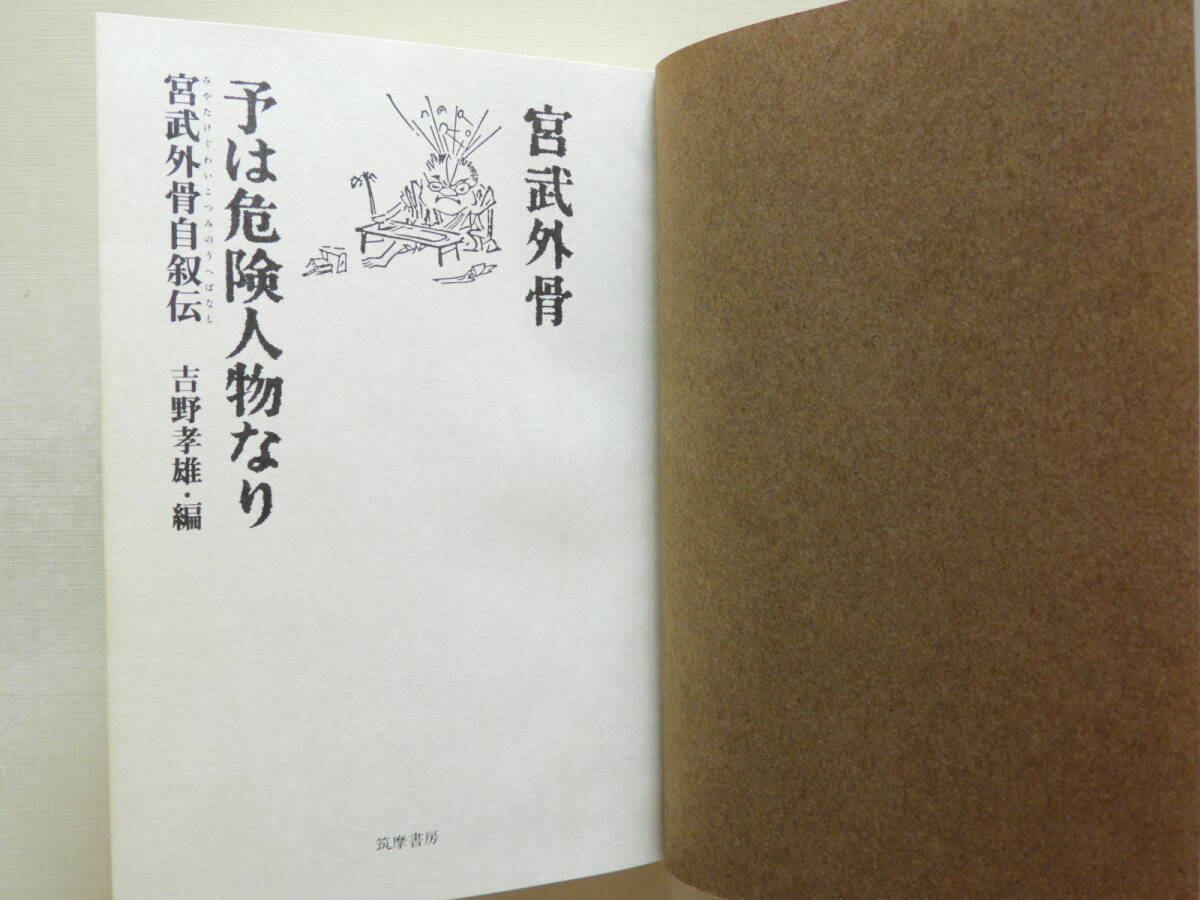 宮武外骨
予は危険人物なり
みやたけぐわいこつみのうへばなし
宮武外骨自叙伝
吉野孝雄・編
筑摩書房